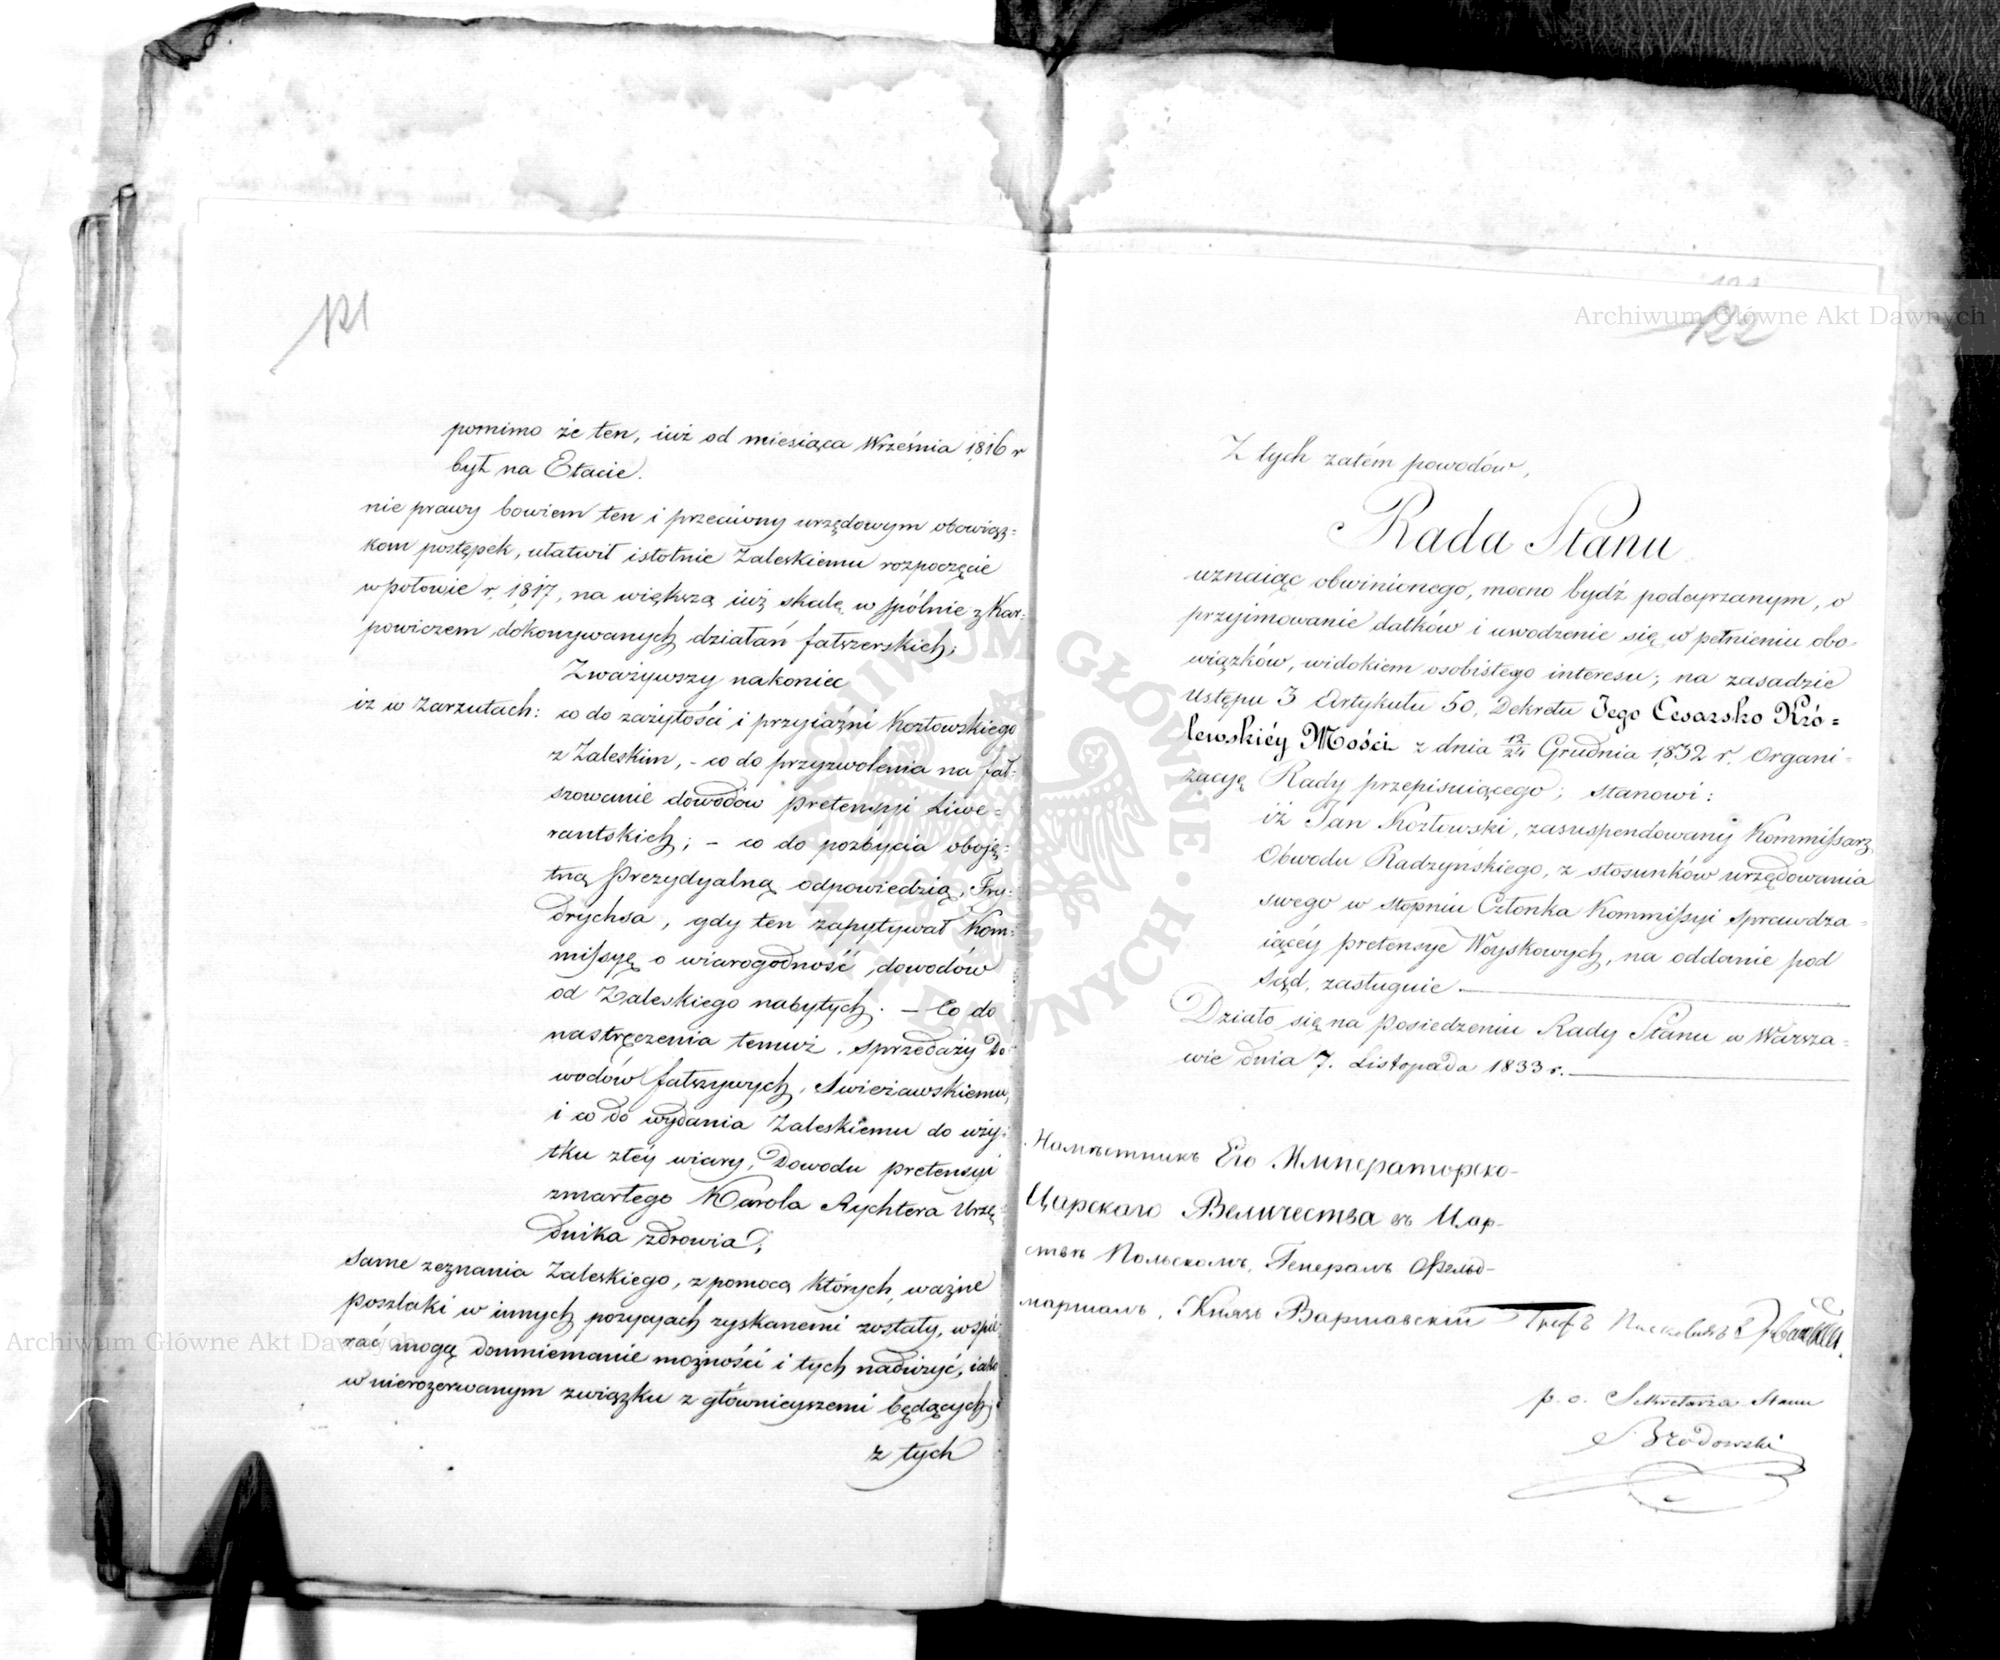 121
pomimo że ten, iuż od miesiąca Września 1816 r
był na Etacie.
nie prawy bowiem ten i przeciwny urzędowym obowiąz=
kom postępek, ułatwił istotnie Zaleskiemu rozpoczęcie
w połowie r. 1817, na większą iuż skalę w spólnie z Kar=
powiczem dokonywanych działań fałszerskich;
Zważywszy nakoniec
iż w Zarzutach: co do zażyłości i przyiaźni Kozłowskiego
z Zaleskim, - co do przyzwolenia na fał=
szowanie dowodów pretensyi Liwe=
rantskich; - co do pozbycia oboję=
tną Prezydyalną odpowiedzią, Fry=
drychsa, gdy ten zapytywał Kom=
missyę o wiarogodność dowodów
od Zaleskiego nabytych. - Co do
nastręczenia temuż, sprzedaży Do=
wodów fałszywych, Swieżawskiemu,
i co do wydania Zaleskiemu do uży=
tku złéy wiary, Dowodu pretensyi
zmarłego Karola Rychtera Urzę
dnika zdrowia;
same zeznania Zaleskiego, z pomocą których, ważne
poszlaki w innych pozycyach zyskanemi zostały, wspie
rać mogą domniemanie możności i tych nadużyć, iako
w nierozerwanym związku z głównieyszemi będących;
z tych
122
Z tych zatém powodów,
Rada Stanu
uznaiąc obwinionego, mocno bydź podeyrzanym, o
przyjmowanie datków i uwodzenie się w pełnieniu obo-
wiązków, widokiem osobistego interesu; na zasadzie
Ustępu 3 Artykułu 50, Dekretu Jego Cesarsko Kró=
lewskiéy Mości z dnia 12/24 Grudnia 1832 r. Organi=
zacyę Rady przepisuiącego; stanowi:
iż Jan Kozłowski, zasuspendowany Kommissarz
Obwodu Radzyńskiego, z stosunków urzędowania
swego w stopniu Członka Kommissyi Sprawdza=
iącéy pretensye Woyskowych, na oddanie pod
Sąd, zasługuie.
Działo się na Posiedzeniu Rady Stanu w Warsza=
wie dnia 7. Listopada 1833 r.
Намѣстникъ Его Императорско-
Царскаго Величества въ Цар-
ствѣ Польскомъ, Генералъ Фельд-
маршалъ, Князь Варшавскій Графъ Паскевичъ Эриванскій.
p. o. Sekretarza Stanu
J. Brodowski
Archiwum Główne Akt Dawnych
Archiwum Główne Akt Dawnych
ARCHIWUM GŁÓWNE · AKT DAWNYCH ·